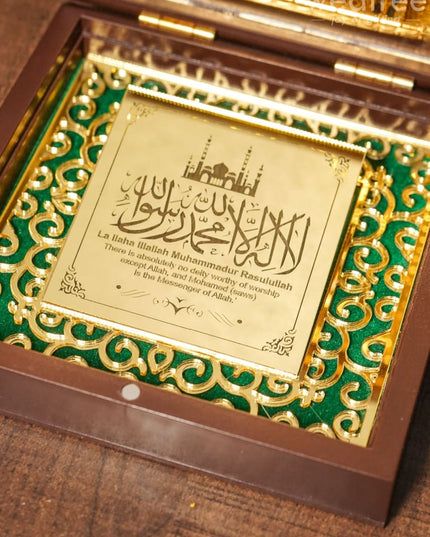 لا إله إلا الله محمد رسول الله
La Ilaha Illallah Muhammadur Rasulullah
There is absolutely no deity worthy of worship
except Allah, and Mohamed (saws)
is the Messenger of Allah.'